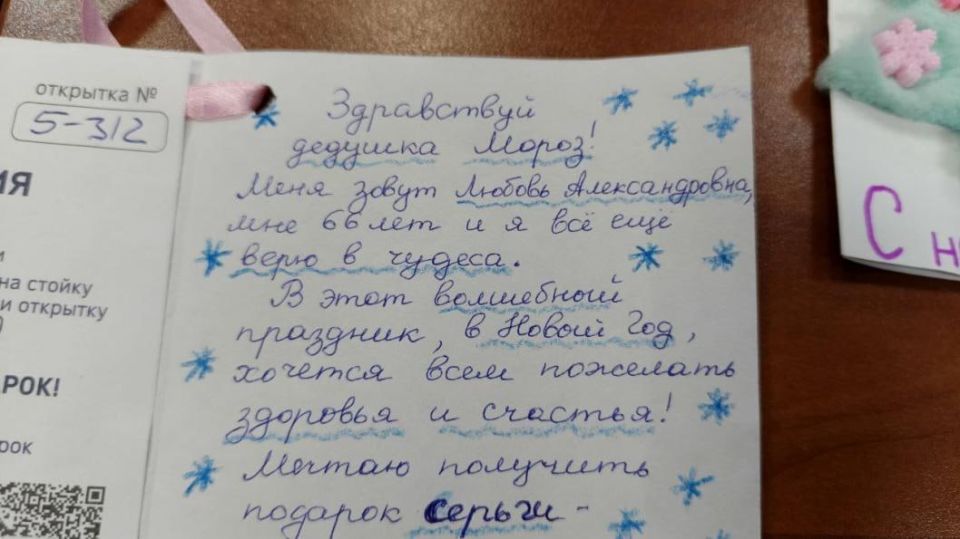 открытка №
5-312
ИЯ
и
на стойку
и открытку
)
РОК!
рок
Здравствуй
дедушка Мороз!
Меня зовут Любовь Александровна,
мне 66 лет и я всё ещё
верю в чудеса.
В этот волшебный
праздник, в Новый Год,
хочется всем пожелать
здоровья и счастья!
Мечтаю получить
подарок серьги -
С н